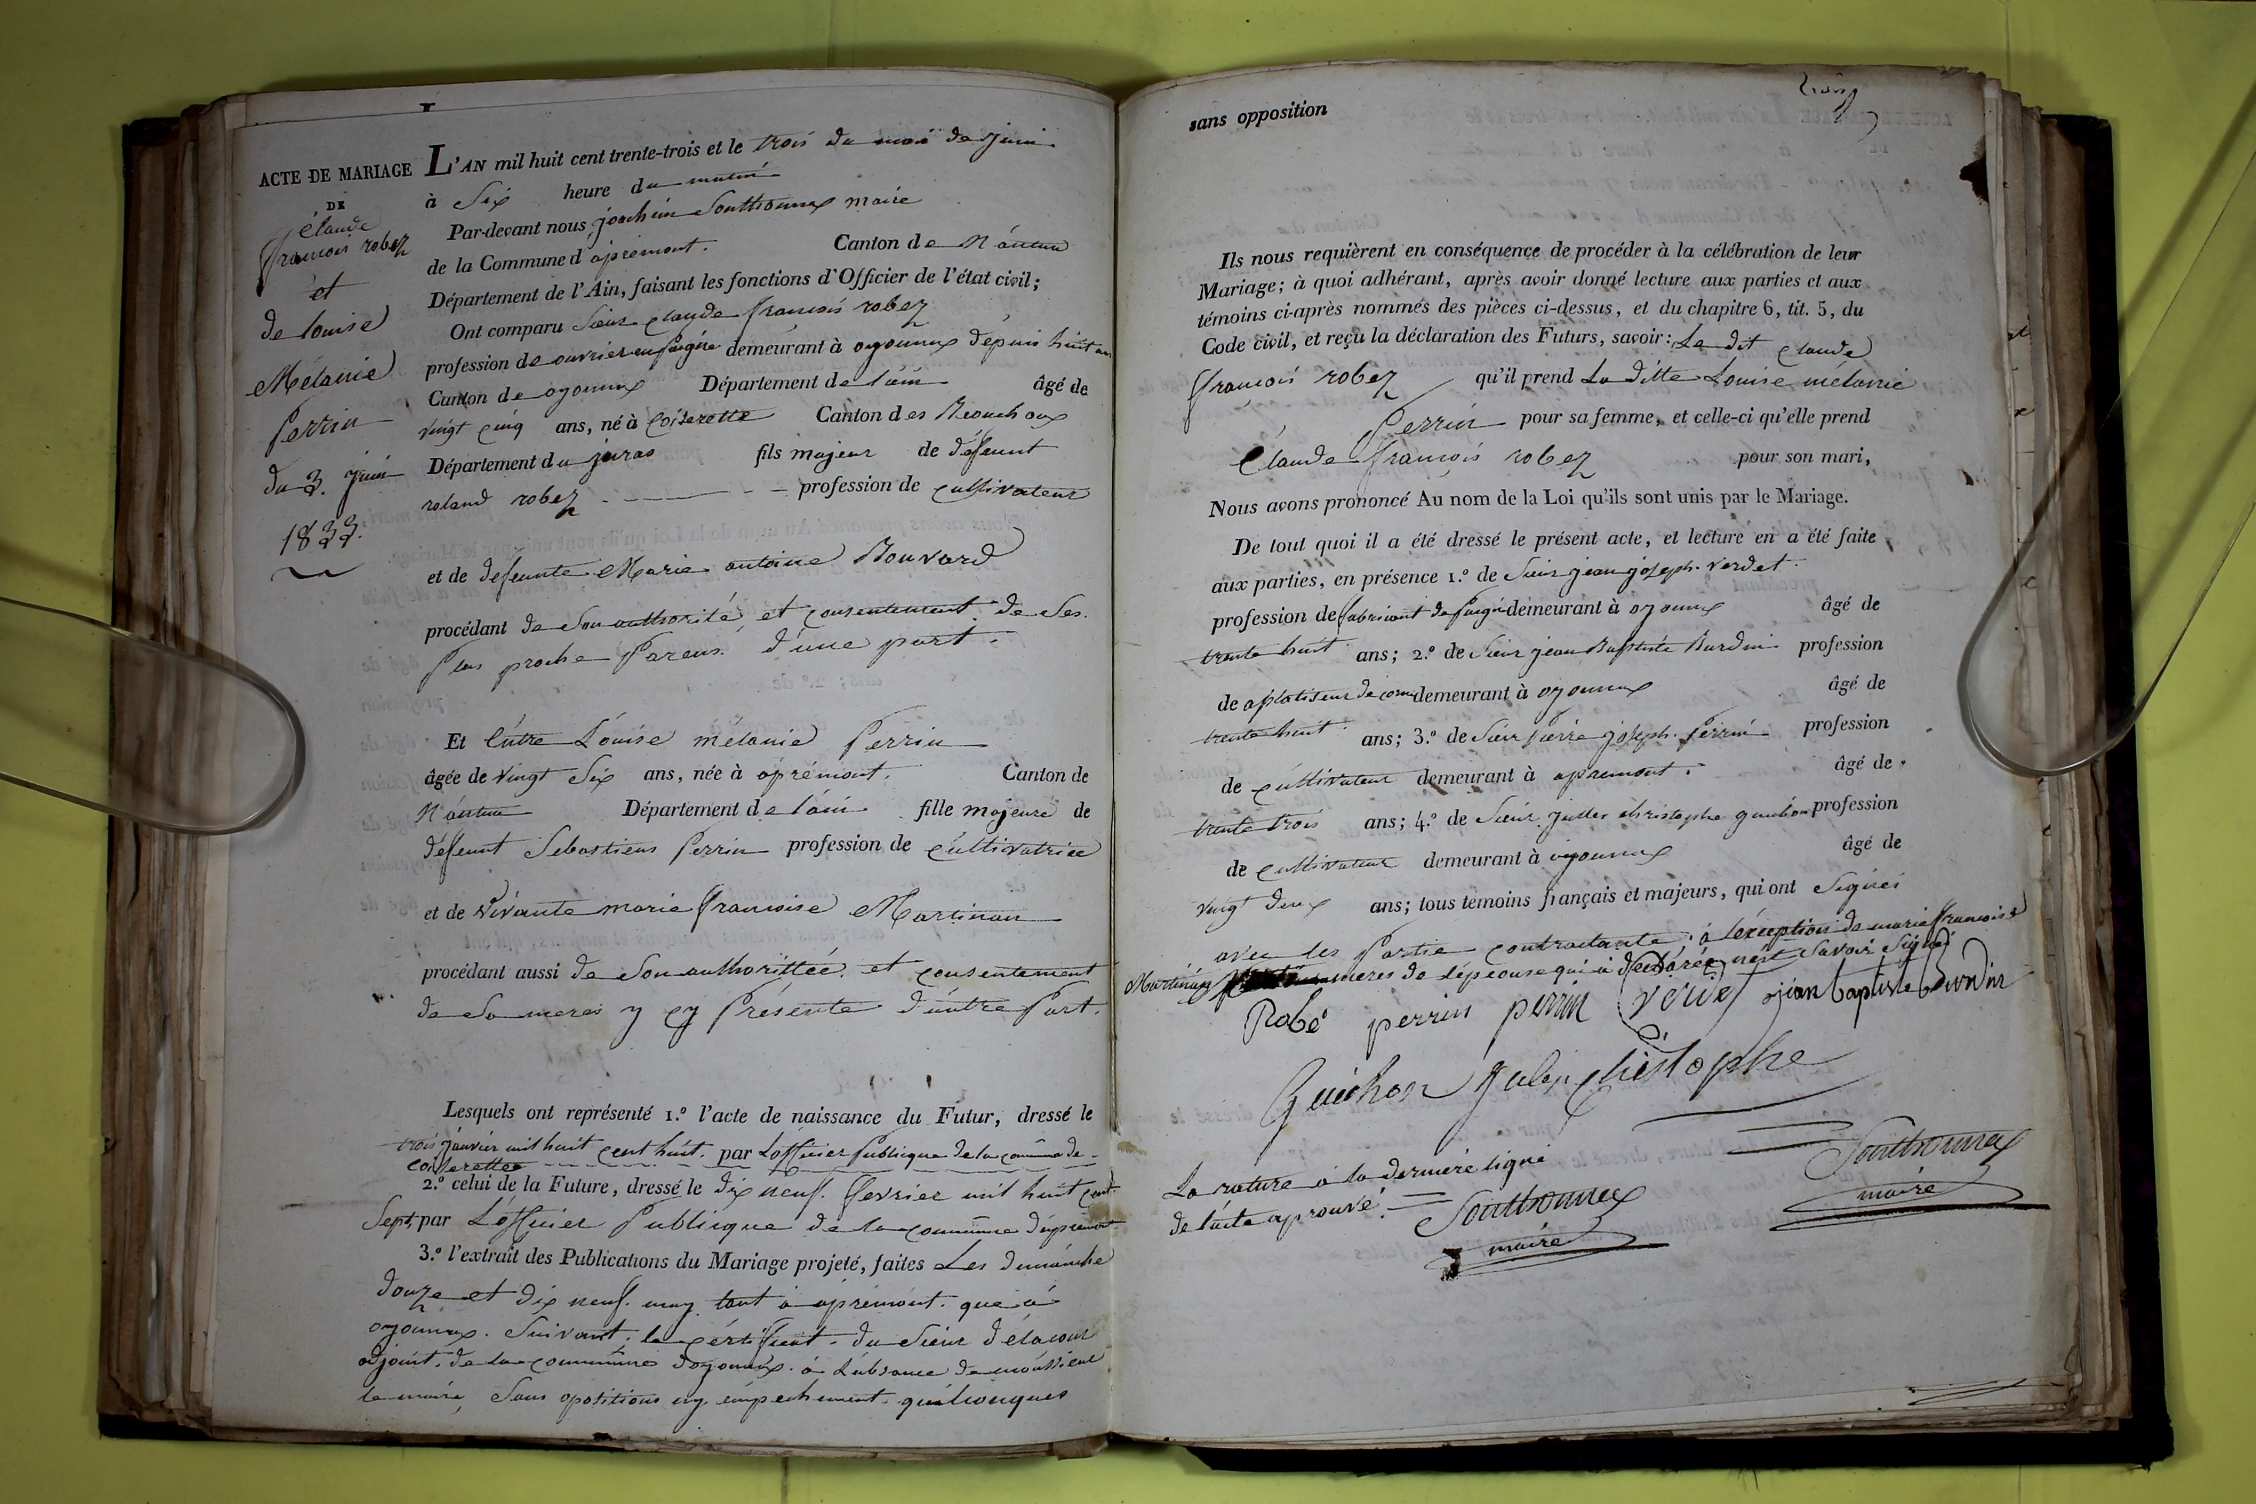 ACTE DE MARIAGE
DE
Claude
françois robez
et
de louise
Mélanie
Perrin
du 3. juin
1833.
L'AN mil huit cent trente-trois et le trois du mois de juin
à Six heure du matin
Par-devant nous joachim Southonnax maire
de la Commune d'apremont. Canton de Nantua
Département de l'Ain, faisant les fonctions d'Officier de l'état civil;
Ont comparu Sieur Claude françois robez
profession de ouvrier en peigne demeurant à oyonnax dépuis huit ans
Canton de oyonnax Département de l'ain âgé de
vingt cinq ans, né à Coiserette Canton des Bouchoux
Département du juras fils majeur de deffunt
roland robez profession de cultivateur
et de deffunte Marie antoine Bouvard
procédant de Son authorité, et consentement de Ses
Plus proche Parens d'une part.
Et Entre Louise mélanie Perrin
âgée de vingt Six ans, née à aprémont. Canton de
Nantua Département de l'ain fille majeure de
deffunt Sebastiens Perrin profession de cultivatrice
et de vivante marie françoise Martinan
procédant aussi de Son authorittée et consentement
de Sa meres y cy Présente d'autre Part.
Lesquels ont représenté 1.º l'acte de naissance du Futur, dressé le
trois janvier mil huit cent huit. par L'officier Publique de la commune de
coiserettee
2.º celui de la Future, dressé le dix neuf. fevrier mil huit cent
Sept, par L'officier Publique de la commune d'apremont
3.º l'extrait des Publications du Mariage projeté, faites Les dimanche
douze et dix neuf. may tant à aprémont. que à
oyonnax. Suivant. le certificat. du Sieur délacour
adjoint. de la commune doyonnax. à L'absance de monssieur
le maire, Sans opositions ny émpechement. quélconques
sans opposition
Ils nous requièrent en conséquence de procéder à la célébration de leur
Mariage; à quoi adhérant, après avoir donné lecture aux parties et aux
témoins ci-après nommés des pièces ci-dessus, et du chapitre 6, tit. 5, du
Code civil, et reçu la déclaration des Futurs, savoir: Le dit Claude
françois robez qu'il prend La ditte Louise mélanie
Perrin pour sa femme, et celle-ci qu'elle prend
Claude françois robez pour son mari,
Nous avons prononcé Au nom de la Loi qu'ils sont unis par le Mariage.
De tout quoi il a été dressé le présent acte, et lecture en a été faite
aux parties, en présence 1.º de Sieur jean joseph. Verdet.
profession de fabricant de peigne demeurant à oyonnax âgé de
trente huit ans; 2.º de Sieur jean Baptiste Burdin profession
de aplatiseur de corne demeurant à oyonnax âgé de
trente huit ans; 3.º de Sieur Pierre joseph. Perrin profession
de cultivateur demeurant à apremont. âgé de
trente trois ans; 4.º de Sieur julles christophe guichon profession
de cultivateur demeurant à oyonnax âgé de
vingt deux ans; tous témoins français et majeurs, qui ont Signés
avec les Partie contractante, à l'éxception de marie françoise
Martinan meres de l'épeouse qui à déclarée n'ést Savoir Signé
Robé perrin perrin verdet jean baptiste burdin
Guichon Jules christophe
Southonnax
maire
La rature à la derniere ligne
de l'acte aprouvé.
Southonnax
maire